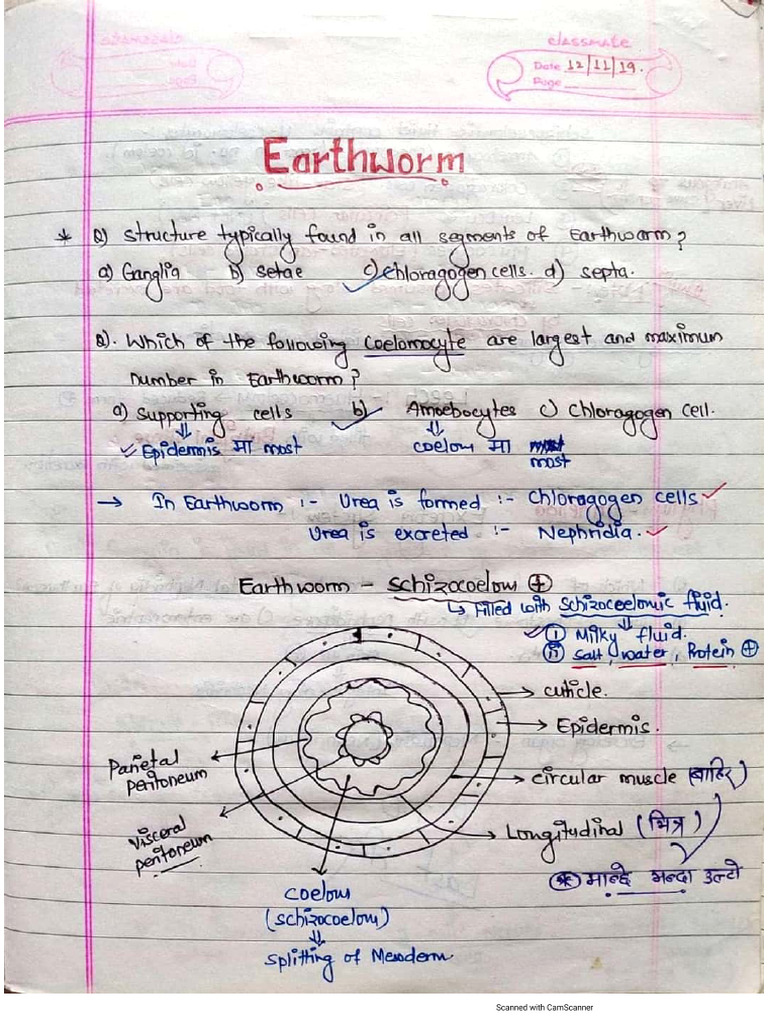 classmate
Date 12/11/19.
Page
Earthworm
* Q) Structure typically found in all segments of Earthworm?
a) Ganglia b) Setae c) Chloragogen cells. d) septa.
Q). Which of the following Coelomocyte are largest and maximum
number in Earthworm?
a) Supporting cells b) Amoebocytes c) Chloragogen cell.
⇓ ⇓
✓ Epidermis मा most coelom मा most
→ In Earthworm :- Urea is formed :- Chloragogen cells ✓
Urea is excreted :- Nephridia. ✓
Earthworm - schizocoelom ⊕
↳ Filled with schizoceelomic fluid.
⇓
✓ ⓘ Milky fluid.
ⓘⓘ Salt, water, Protein ⊕
→ cuticle.
→ Epidermis.
Parietal
peritoneum
→ circular muscle (बाहिर)
→ Longitudinal (भित्र)
Visceral
peritoneum
* मान्छे भन्दा उल्टो
coelom
(schizocoelom)
⇓
splitting of Mesoderm.
Scanned with CamScanner